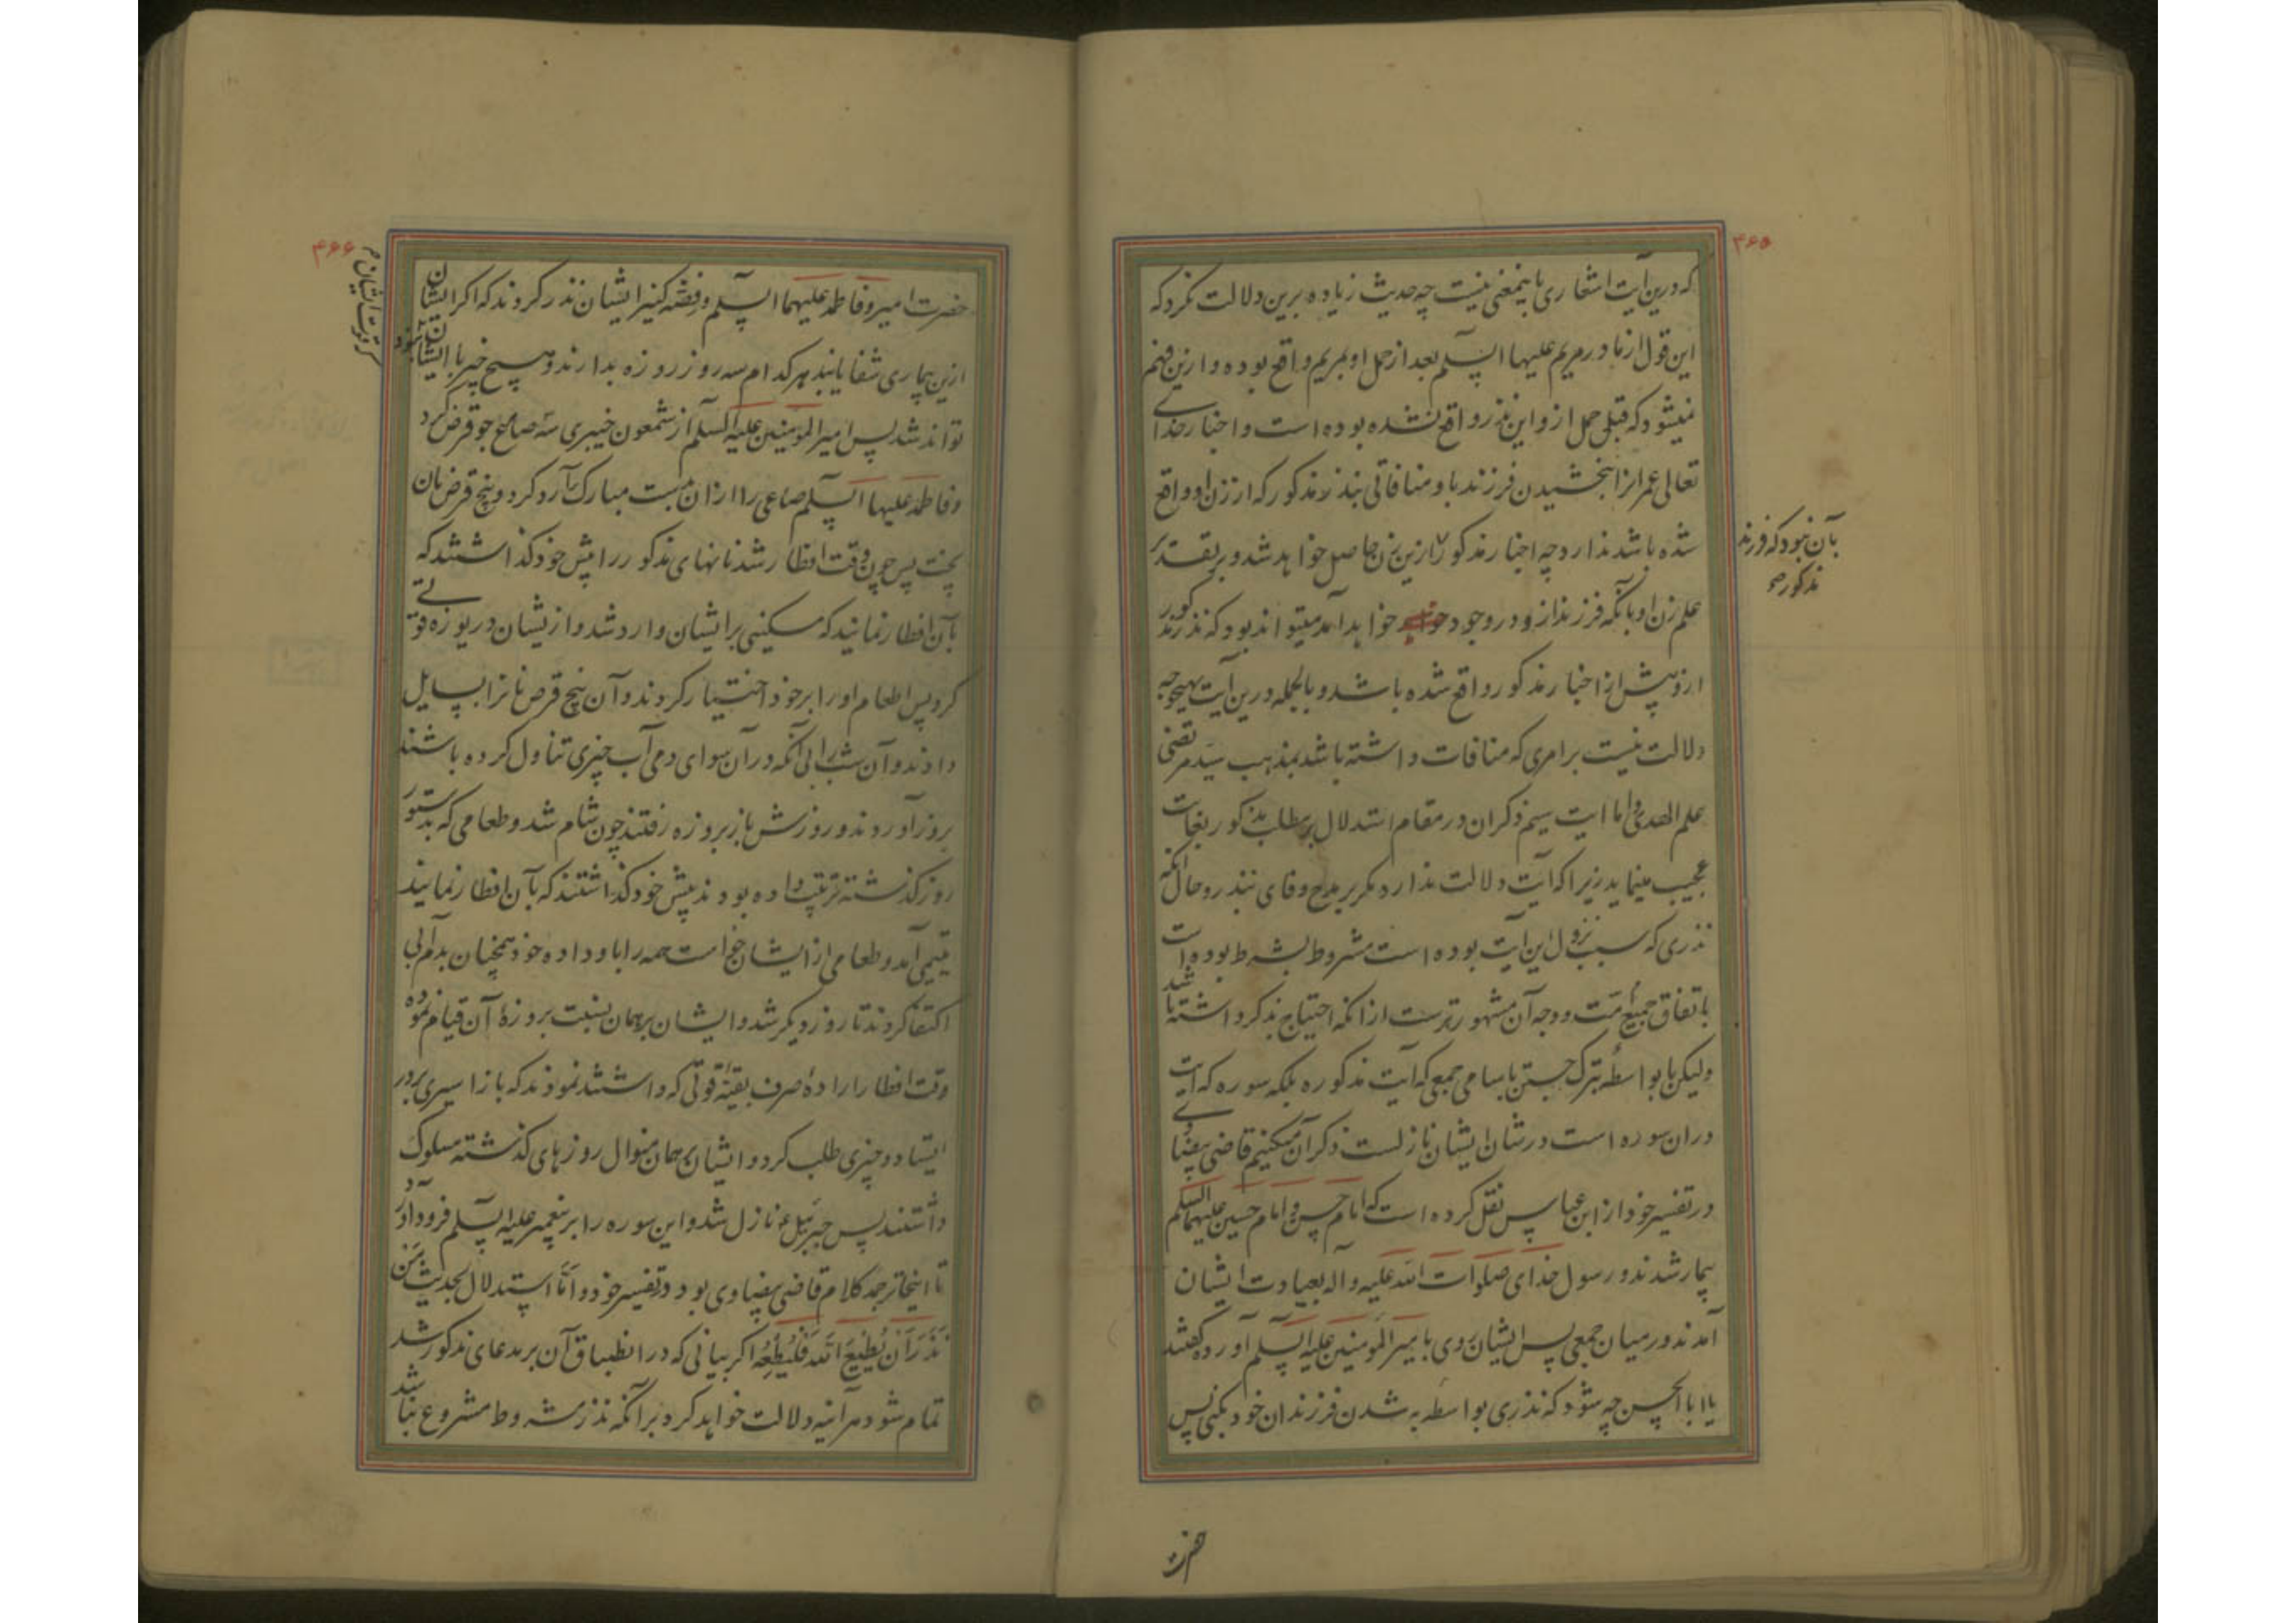 ۴۶۵
که درین آیت اشعاری باینمعنی نیست چه حدیث زیاده برین دلالت نکرد که
این قول از مادر مریم علیها السلم بعد از حمل او بمریم واقع بوده و ازین فهم
نمیشود که قبل حمل ازو این نذر واقع نشده بوده است و اخبار خدای
تعالی عمران را ببخشیدن فرزند باو منافاتی بنذر مذکور که از زن او واقع
شده باشد ندارد چه اخبار مذکور ازین زن حاصل خواهد شد و بر تقدیر
بآن نبود که فرزند
مذکور صح
علم زن او بآنکه فرزند ازو در وجود خواهد آمد میتواند بود که نذر مذکور
ازو پیش از اخبار مذکور واقع شده باشد و بالجمله درین آیت بهیچوجه
دلالت نیست بر امری که منافات داشته باشد بمذهب سید مرتضی
علم الهدی و اما آیت سیم ذکر آن در مقام استدلال بر مطلب مذکور بغایت
عجیب مینماید زیرا که آیت دلالت ندارد مگر بر مدح وفای بنذر و حال آنکه
نذری که سبب نزول این آیت بوده است مشروط بشرط بوده است
باتفاق جمیع امت و وجه آن مشهورترست از آنکه احتیاج بذکر داشته باشد
ولیکن ما بواسطه تبرک جستن باسامی جمعی که آیت مذکوره بلکه سوره که آیت
در ان سوره است در شان ایشان نازلست ذکر آن میکنیم قاضی بیضاوی
در تفسیر خود از ابن عباس نقل کرده است که امام حسن و امام حسین علیهما السلم
بیمار شدند و رسول خدای صلوات الله علیه و اله بعیادت ایشان
آمدند در میان جمعی پس ایشان روی بامیر المومنین علیه السلم آورده گفتند
یا ابا الحسن چه شود که نذری بواسطه به شدن فرزندان خود بکنی پس
حضرت
۴۶۶
حضرت امیر و فاطمه علیهما السلم و فضه کنیز ایشان نذر کردند که اگر ایشان
ازین بیماری شفا یابند هر کدام سه روز روزه بدارند و هیچ چیز با ایشان نبود
تواند شد پس امیر المومنین علیه السلم از شمعون خیبری سه صاع جو قرض کرد
و فاطمه علیها السلم صاعی را از ان بدست مبارک آرد کرد و پنج قرض نان
پخت پس چون وقت افطار شد نانهای مذکور را پیش خود گذاشتند که
بآن افطار نمایند که مسکینی بر ایشان وارد شد و ازیشان دریوزه قوتی
کرد پس اطعام او را بر خود اختیار کردند و آن پنج قرص نان را بسایل
دادند و آن شب را بی آنکه در آن سوای دمی آب چیزی تناول کرده باشند
بروز آوردند و روزش باز بروزه رفتند چون شام شد و طعامی که بدستور
روز گذشته ترتیب داده بودند پیش خود گذاشتند که بآن افطار نمایند
یتیمی آمد و طعامی از ایشان خواست همه را باو داده خود همچنان بدم آبی
اکتفا کردند تا روز دیگر شد و ایشان بر همان نسبت بروزهٔ آن قیام نموده
وقت افطار ارادهٔ صرف بقیهٔ قوتی که داشتند نمودند که باز اسیری بر در
ایستاد و چیزی طلب کرد و ایشان بر همان منوال روزهای گذشته سلوک
داشتند پس جبرئیل ع نازل شد و این سوره را بر پیغمبر علیه السلم فرود آورد
تا اینجا ترجمه کلام قاضی بیضاوی بود در تفسیر خود و اما استدلال بحدیث من
نذر ان یطیع الله فلیطعه اگر بیانی که در انطباق آن بر مدعای مذکور شد
تمام شود هر آینه دلالت خواهد کرد بر آنکه نذر مشروط مشروع نباشد